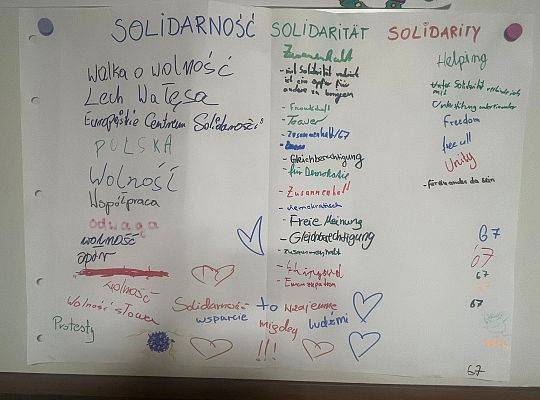 SOLIDARNOŚĆ SOLIDARITÄT SOLIDARITY
Walka o wolność
Lech Wałęsa
Europejskie Centrum Solidarności
POLSKA
Wolność
Współpraca
odwaga
wolność
opór
wolność
Wolność słowa
Protesty
Solidarność to wzajemne
wsparcie między ludźmi
!!!
Zusammenhalt
- mit Solidarität
ist ein opfer für
andere zu bringen
- Freundschaft
- Teawer
- Zusammenhalt/67
- Gleichberechtigung
- für Demokratie
- Zusammenhalt
- demokratisch
- Freie Meinung
- Gleichberechtigung
- zusammenhalt
- Emanzipation
Helping
unter Solidarität
mit
Unterstützung
Freedom
free all
Unity
- füreinander da sein
67
67
67
67
67
67